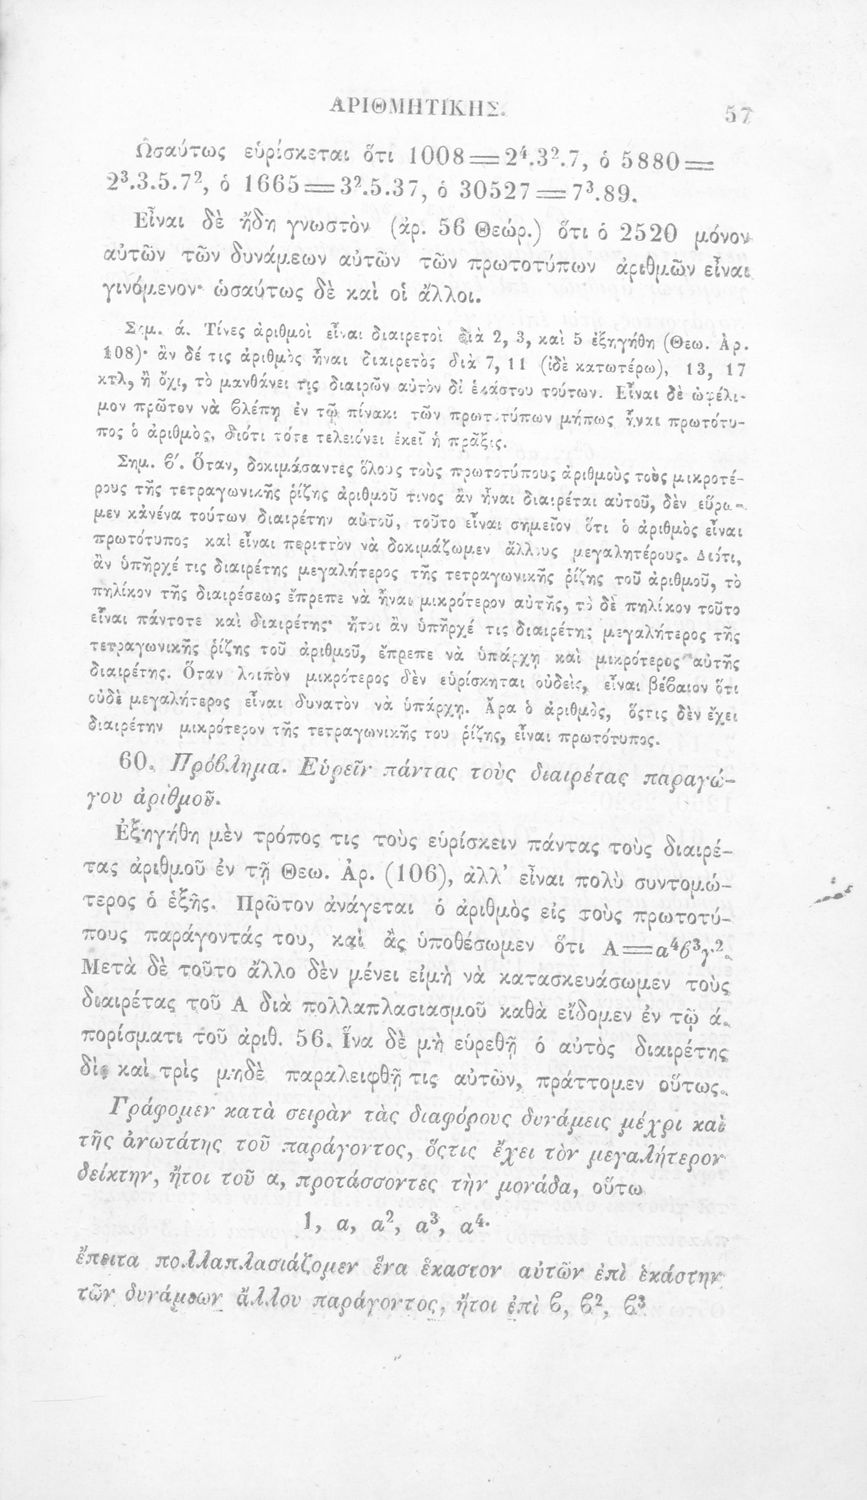 ΑΡΙΘΜΗΤΙΚΗΣ. 57
Ὡσαύτως εὑρίσκεται ὅτι 1008=2⁴.3².7, ὁ 5880=
2³.3.5.7², ὁ 1665=3².5.37, ὁ 30527=7³.89.
Εἶναι δὲ ἤδη γνωστὸν (ἀρ. 56 Θεώρ.) ὅτι ὁ 2520 μόνον
αὐτῶν τῶν δυνάμεων αὐτῶν τῶν πρωτοτύπων ἀριθμῶν εἶναι
γινόμενον· ὡσαύτως δὲ καὶ οἱ ἄλλοι.
Σημ. ά. Τίνες ἀριθμοὶ εἶναι διαιρετοὶ διὰ 2, 3, καὶ 5 ἐξηγήθη (Θεω. Ἀρ.
108)· ἂν δέ τις ἀριθμὸς ἦναι διαιρετὸς διὰ 7, 11 (ἰδὲ κατωτέρω), 13, 17
κτλ, ἢ ὄχι, τὸ μανθάνει τις διαιρῶν αὐτὸν δι᾽ ἑκάστου τούτων. Εἶναι δὲ ὠφέλι-
μον πρῶτον νὰ βλέπῃ ἐν τῷ πίνακι τῶν πρωτοτύπων μήπως ἦναι πρωτότυ-
πος ὁ ἀριθμὸς, διότι τότε τελειόνει ἐκεῖ ἡ πρᾶξις.
Σημ. ϐ΄. Ὅταν, δοκιμάσαντες ὅλους τοὺς πρωτοτύπους ἀριθμοὺς τοὺς μικροτέ-
ρους τῆς τετραγωνικῆς ῥίζης ἀριθμοῦ τινος ἂν ἦναι διαιρέται αὐτοῦ, δὲν εὕρω-
μεν κἀνένα τούτων διαιρέτην αὐτοῦ, τοῦτο εἶναι σημεῖον ὅτι ὁ ἀριθμὸς εἶναι
πρωτότυπος καὶ εἶναι περιττὸν νὰ δοκιμάζωμεν ἄλλους μεγαλητέρους. Διότι,
ἂν ὑπῆρχέ τις διαιρέτης μεγαλήτερος τῆς τετραγωνικῆς ῥίζης τοῦ ἀριθμοῦ, τὸ
πηλίκον τῆς διαιρέσεως ἔπρεπε νὰ ἦναι μικρότερον αὐτῆς, τὸ δὲ πηλίκον τοῦτο
εἶναι πάντοτε καὶ διαιρέτης· ἤτοι ἂν ὑπῆρχέ τις διαιρέτης μεγαλήτερος τῆς
τετραγωνικῆς ῥίζης τοῦ ἀριθμοῦ, ἔπρεπε νὰ ὑπάρχῃ καὶ μικρότερος αὐτῆς
διαιρέτης. Ὅταν λοιπὸν μικρότερος δὲν εὑρίσκηται οὐδεὶς, εἶναι βέβαιον ὅτι
οὐδὲ μεγαλήτερος εἶναι δυνατὸν νὰ ὑπάρχῃ. Ἄρα ὁ ἀριθμὸς, ὅςτις δὲν ἔχει
διαιρέτην μικρότερον τῆς τετραγωνικῆς του ῥίζης, εἶναι πρωτότυπος.
60. Πρόβλημα. Εὑρεῖν πάντας τοὺς διαιρέτας παραγώ-
γου ἀριθμοῦ.
Ἐξηγήθη μὲν τρόπος τις τοὺς εὑρίσκειν πάντας τοὺς διαιρέ-
τας ἀριθμοῦ ἐν τῇ Θεω. Ἀρ. (106), ἀλλ᾽ εἶναι πολὺ συντομώ-
τερος ὁ ἑξῆς. Πρῶτον ἀνάγεται ὁ ἀριθμὸς εἰς τοὺς πρωτοτύ-
πους παράγοντάς του, καὶ ἂς ὑποθέσωμεν ὅτι Α=α⁴ϐ³γ².
Μετὰ δὲ τοῦτο ἄλλο δὲν μένει εἰμὴ νὰ κατασκευάσωμεν τοὺς
διαιρέτας τοῦ Α διὰ πολλαπλασιασμοῦ καθὰ εἴδομεν ἐν τῷ ά.
πορίσματι τοῦ ἀριθ. 56. Ἵνα δὲ μὴ εὑρεθῇ ὁ αὐτὸς διαιρέτης
δὶς καὶ τρὶς μηδὲ παραλειφθῇ τις αὐτῶν, πράττομεν οὕτως.
Γράφομεν κατὰ σειρὰν τὰς διαφόρους δυνάμεις μέχρι καὶ
τῆς ἀνωτάτης τοῦ παράγοντος, ὅςτις ἔχει τὸν μεγαλήτερον
δείκτην, ἤτοι τοῦ α, προτάσσοντες τὴν μονάδα, οὕτω
1, α, α², α³, α⁴·
ἔπειτα πολλαπλασιάζομεν ἕνα ἕκαστον αὐτῶν ἐπὶ ἑκάστην
τῶν δυνάμεων ἄλλου παράγοντος, ἤτοι ἐπὶ ϐ, ϐ², ϐ³